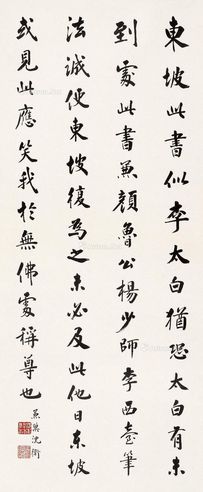 東坡此書似李太白猶恐太白有未
到處此書兼顏魯公楊少師李西臺筆
法試使東坡復為之未必及此他日東坡
或見此應笑我於無佛處稱尊也
沈衛